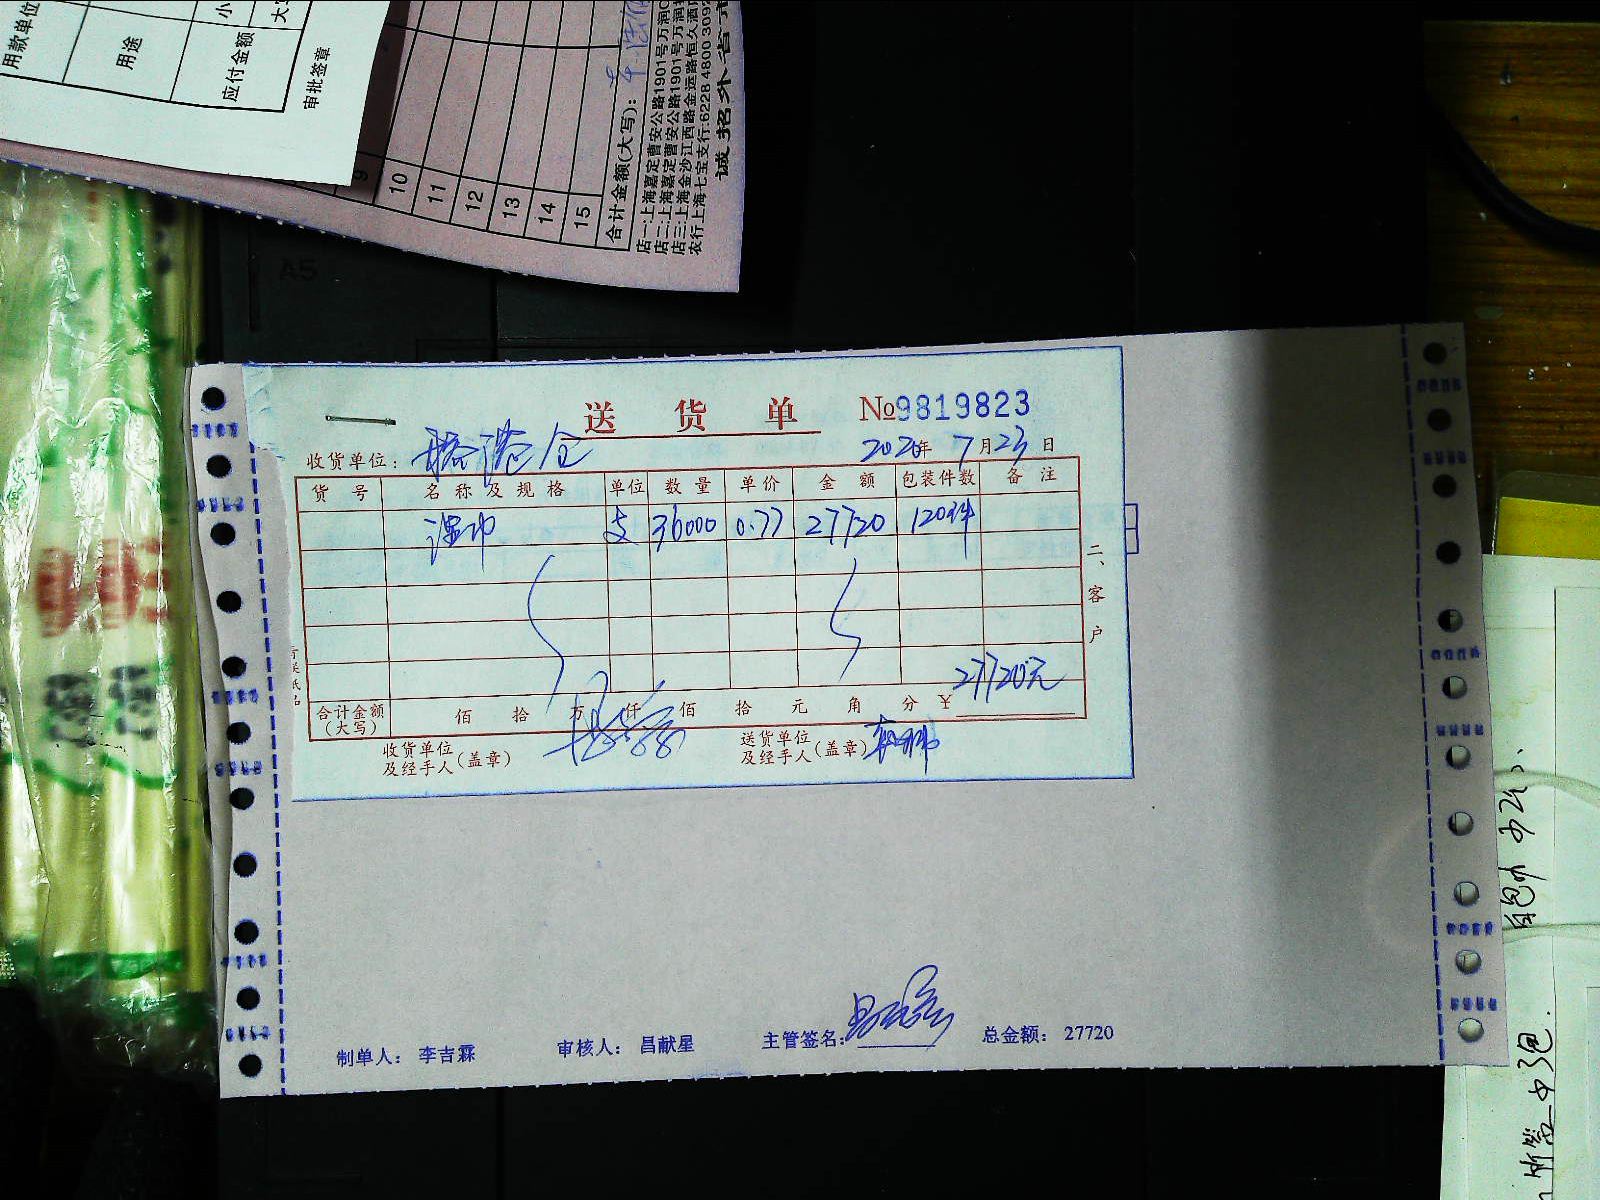 用款单位
用途
小
大
应付金额
审批签章
9
10
11
12
13
14
15
合计金额(大写):
店一:上海嘉定曹安公路1901号万润
店二:上海嘉定曹安公路1901号万润
店三:上海金沙江西路金运路恒久酒
农行:上海七宝支行:6228 4800 3092
诚招外省市
A5
送货单 №9819823
收货单位: 2020年 7月23日
货号 名称及规格 单位 数量 单价 金额 包装件数 备注
湿巾 支 36000 0.77 27720 120件
二、客户
27720元
合计金额(大写) 佰 拾 万 仟 佰 拾 元 角 分 ¥
收货单位及经手人(盖章)
送货单位及经手人(盖章)
制单人: 李吉霖 审核人: 昌献星 主管签名: 总金额: 27720